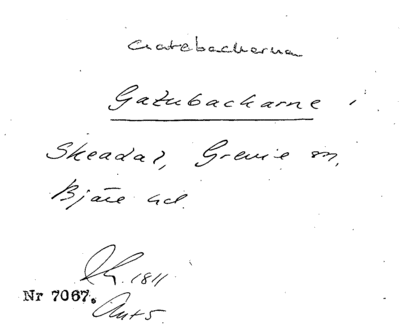 Gatebackarna
Gatubackarne i
Skeadal, Grevie sn,
Bjäre hd.
1811
Nr 7067.
Akt 5.